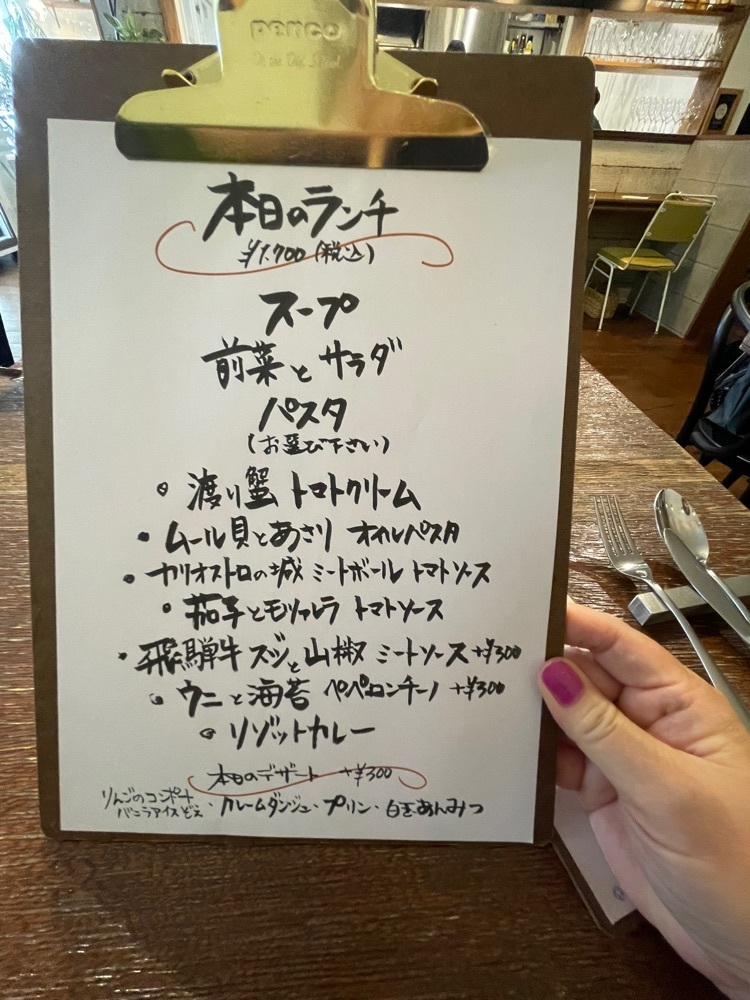 penco
本日のランチ
¥1.700(税込)
スープ
前菜とサラダ
パスタ
(お選び下さい)
・渡り蟹 トマトクリーム
・ムール貝とあさり オイルパスタ
・カリオストロの城 ミートボール トマトソース
・茄子とモツァレラ トマトソース
・飛騨牛スジと山椒 ミートソース +¥300
・ウニと海苔 ペペロンチーノ +¥300
・リゾットカレー
本日のデザート +¥300
りんごのコンポート
バニラアイスどえ・クレームダンジュ・プリン・白玉あんみつ